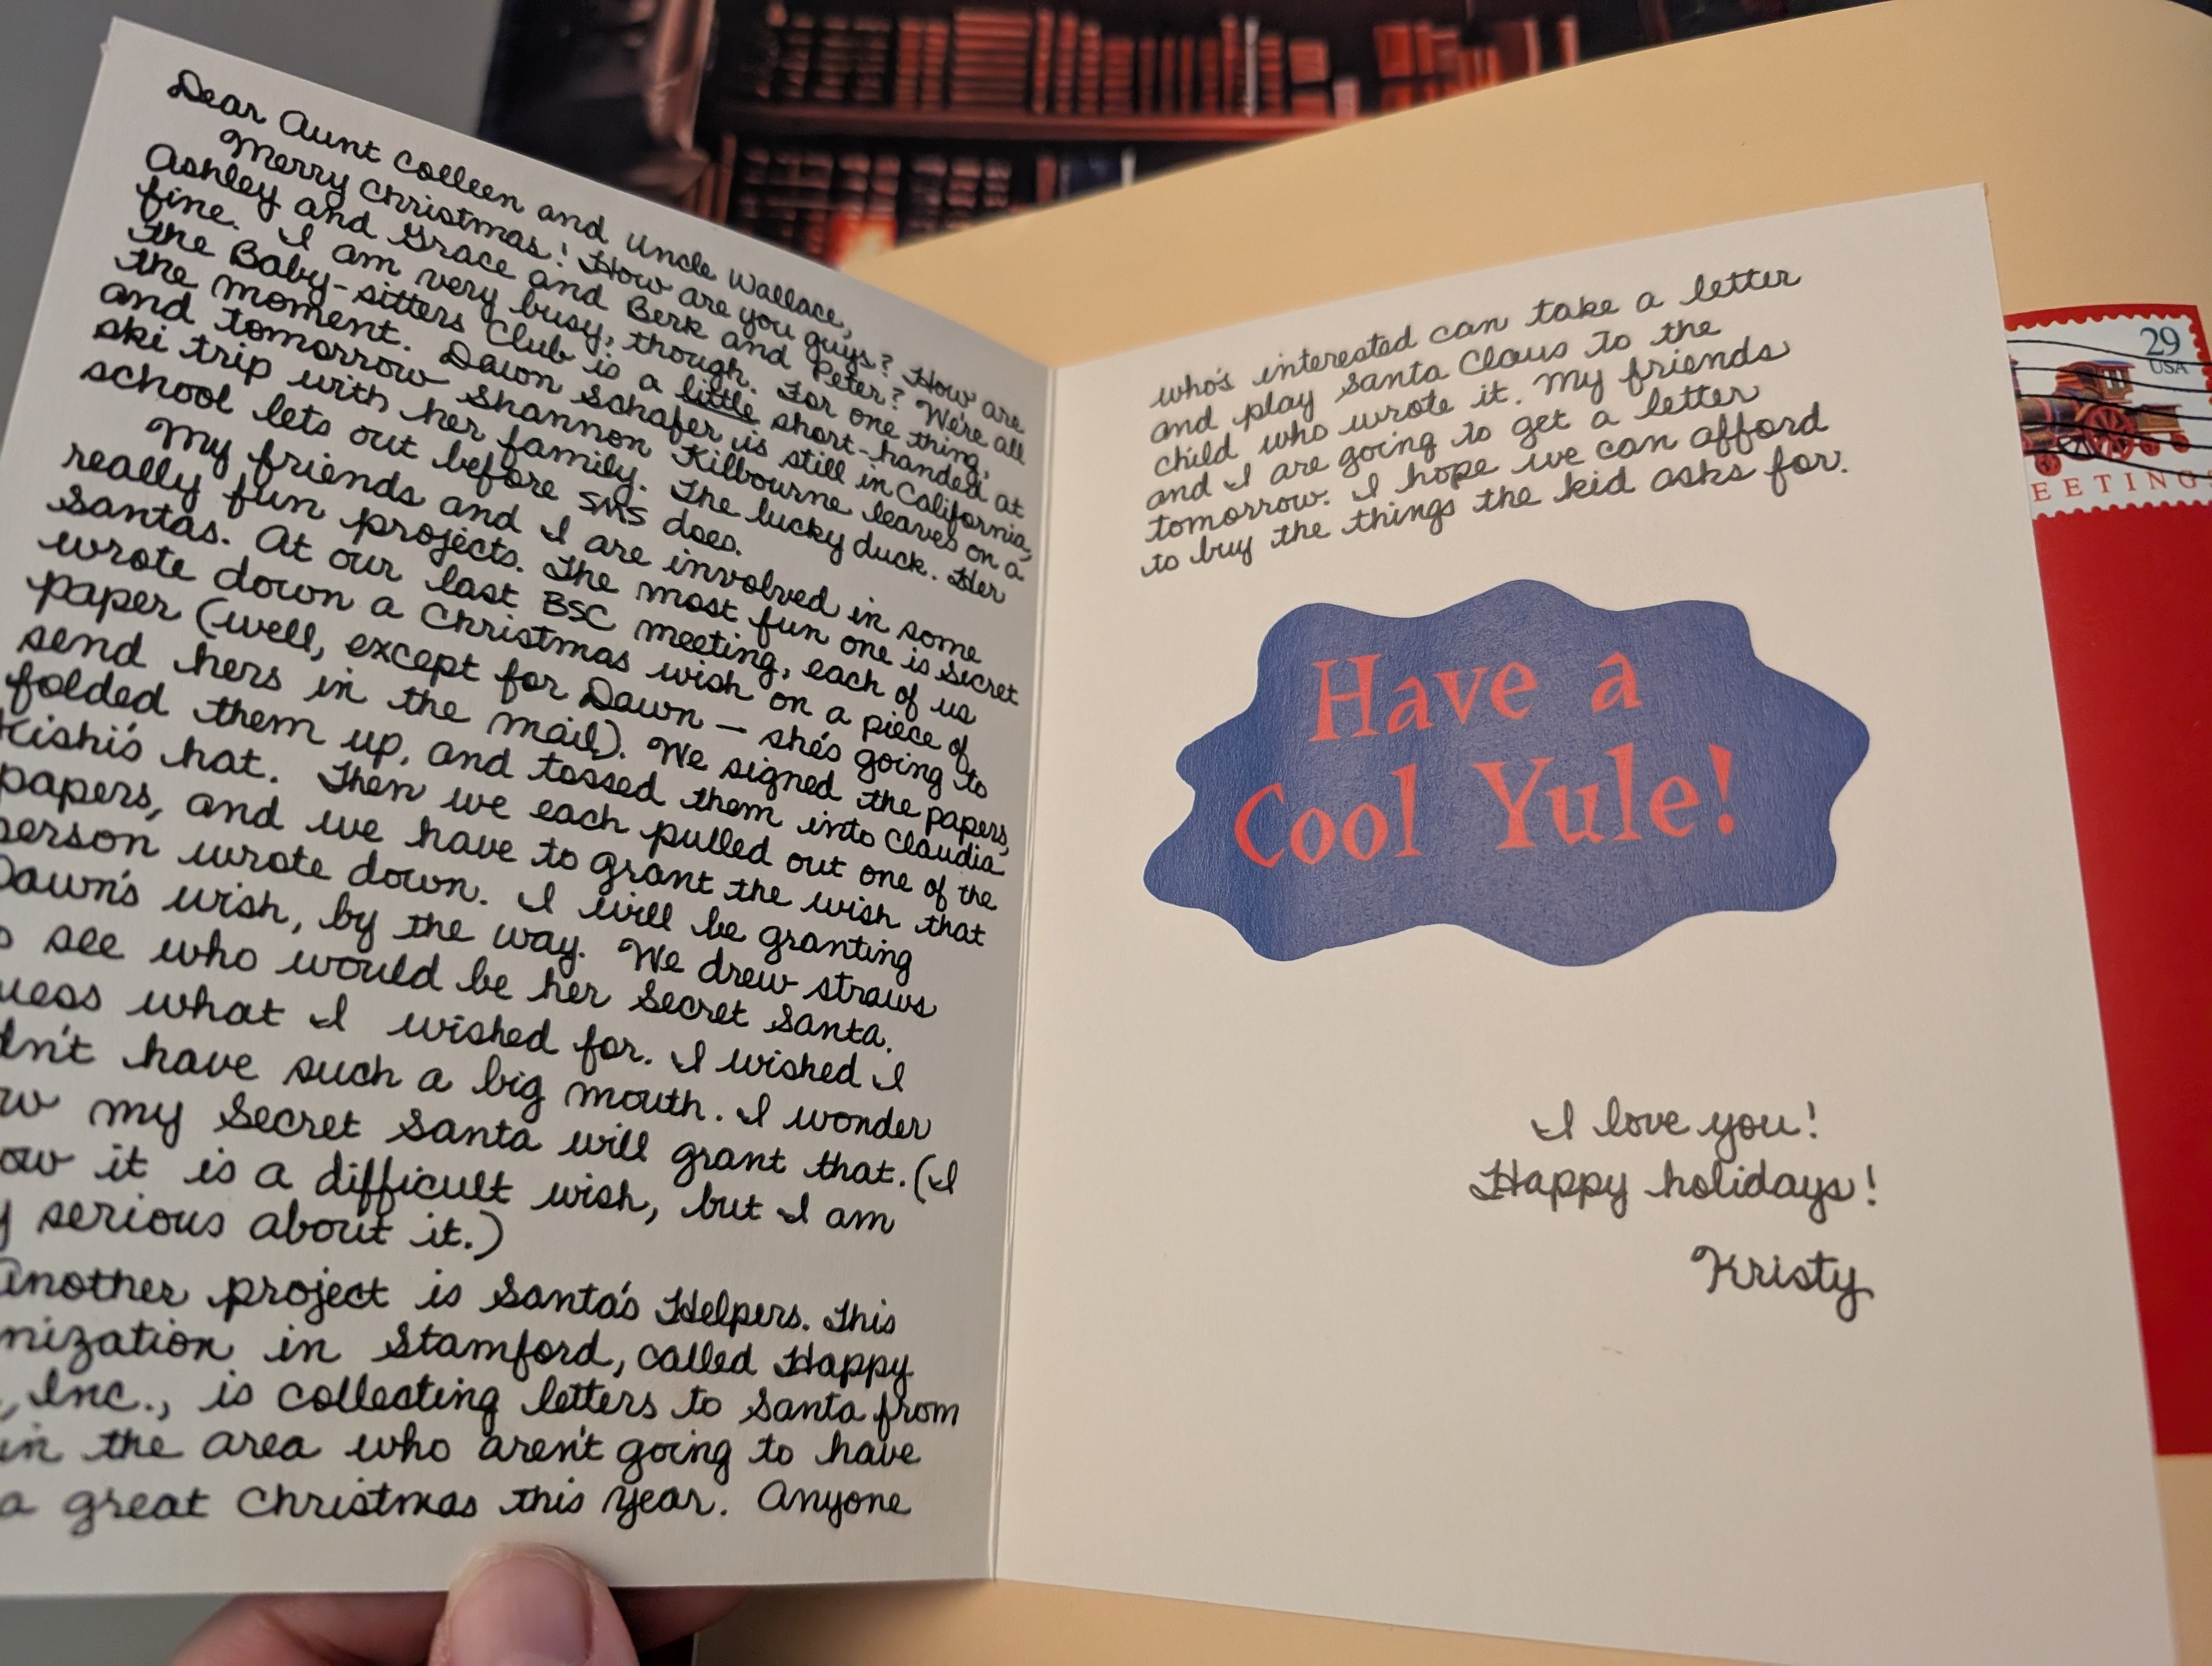 Dear Aunt Colleen and Uncle Wallace,
Merry Christmas! How are you guys? How are
Ashley and Grace and Berk and Peter? We're all
fine. I am very busy, though. For one thing,
the Baby-sitters Club is a little short-handed at
the moment. Dawn Schafer is still in California,
and tomorrow Shannon Kilbourne leaves on a
ski trip with her family. The lucky duck. Her
school lets out before SMS does.
My friends and I are involved in some
really fun projects. The most fun one is Secret
Santas. At our last BSC meeting, each of us
wrote down a Christmas wish on a piece of
paper (well, except for Dawn — she's going to
send hers in the mail). We signed the papers,
folded them up, and tossed them into Claudia
Kishi's hat. Then we each pulled out one of the
papers, and we have to grant the wish that
person wrote down. I will be granting
Dawn's wish, by the way. We drew straws
see who would be her Secret Santa.
what I wished for. I wished I
have such a big mouth. I wonder
my Secret Santa will grant that. (I
it is a difficult wish, but I am
serious about it.)
Another project is Santa's Helpers. This
in Stamford, called Happy
, Inc., is collecting letters to Santa from
in the area who aren't going to have
a great Christmas this year. Anyone
who's interested can take a letter
and play Santa Claus to the
child who wrote it. My friends
and I are going to get a letter
tomorrow. I hope we can afford
to buy the things the kid asks for.
Have a
Cool Yule!
I love you!
Happy holidays!
Kristy
29
USA
EETING